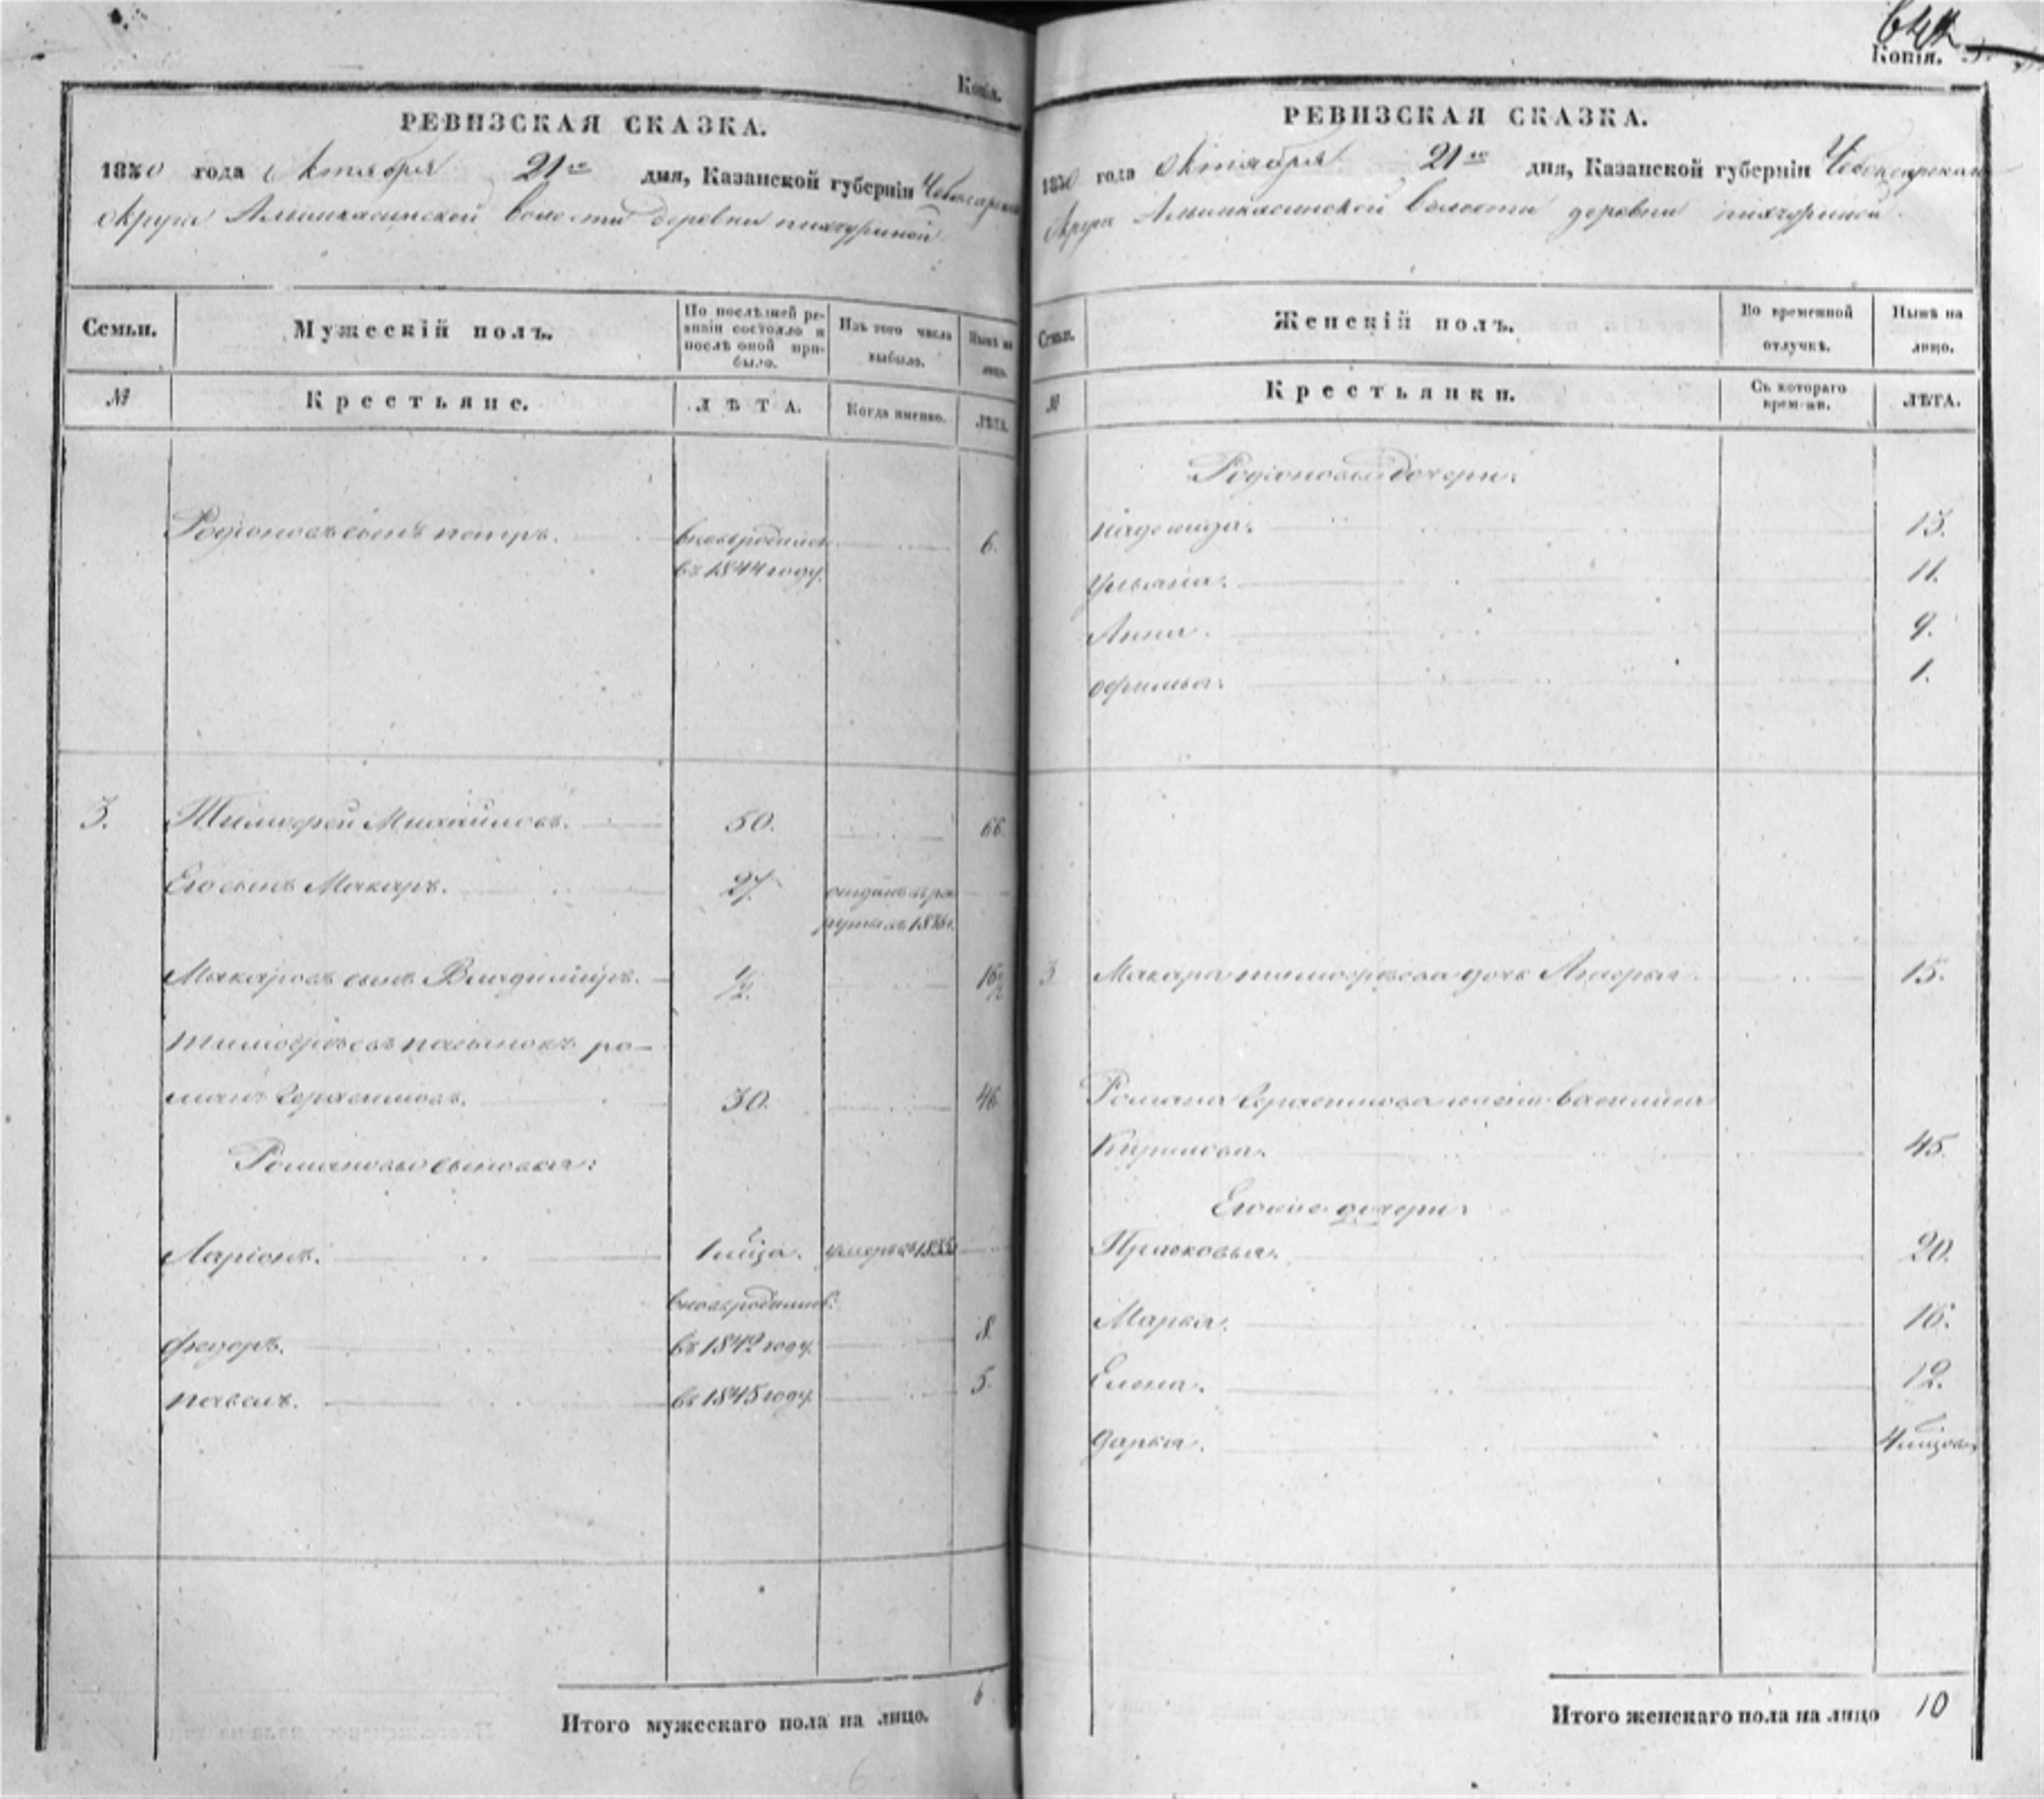 Копія.
РЕВИЗСКАЯ СКАЗКА.
1850 года Октября 21го дня, Казанской губерніи Чебоксарскаго
Округа Алымкасинской волости деревни пихтулиной
Семьи.
Мужескій полъ.
По послѣдней ре-
визіи состояло и
послѣ оной при-
было.
Изъ того числа
выбыло.
Нынѣ на
лицо.
№
Крестьяне.
ЛѢТА.
Когда именно.
ЛѢТА.
Родіоновъ сынъ петръ. вновьродился 6.
въ 1844 году.
3. Тимофей Михайловъ. 50. 66.
Его сынъ Макаръ. 27. отданъ въ рек
руты въ 1836 г.
Макаровъ сынъ Владимиръ. 1/2. 16 1/2
тимофѣевъ пасынокъ ро-
манъ Герасимовъ. 30. 46.
Романовы сыновья:
Ларіонъ. 1 мѣца. умеръ въ 1835
вновьродившіе:
федоръ. въ 1842 году. 8.
павелъ. въ 1845 году. 5.
Итого мужескаго пола на лицо. 6
6
Копія.
РЕВИЗСКАЯ СКАЗКА.
1850 года Октября 21го дня, Казанской губерніи Чебоксарскаго
Округа Алымкасинской волости деревни
Семьи.
Женскій полъ.
Во временной
отлучкѣ.
Нынѣ на
лицо.
№
Крестьянки.
Съ котораго
времени.
ЛѢТА.
Родіоновы дочери:
надежида. 13.
ульяна. 11.
Анна. 9.
1.
3 Макара тимофѣева дочь 15.
Романа Герасимова жена василиса
Кирилова. 45.
Его же дочери:
Прасковья. 20.
Марья. 16.
Елена. 12.
дарья. 4 мѣцовъ
Итого женскаго пола на лицо 10